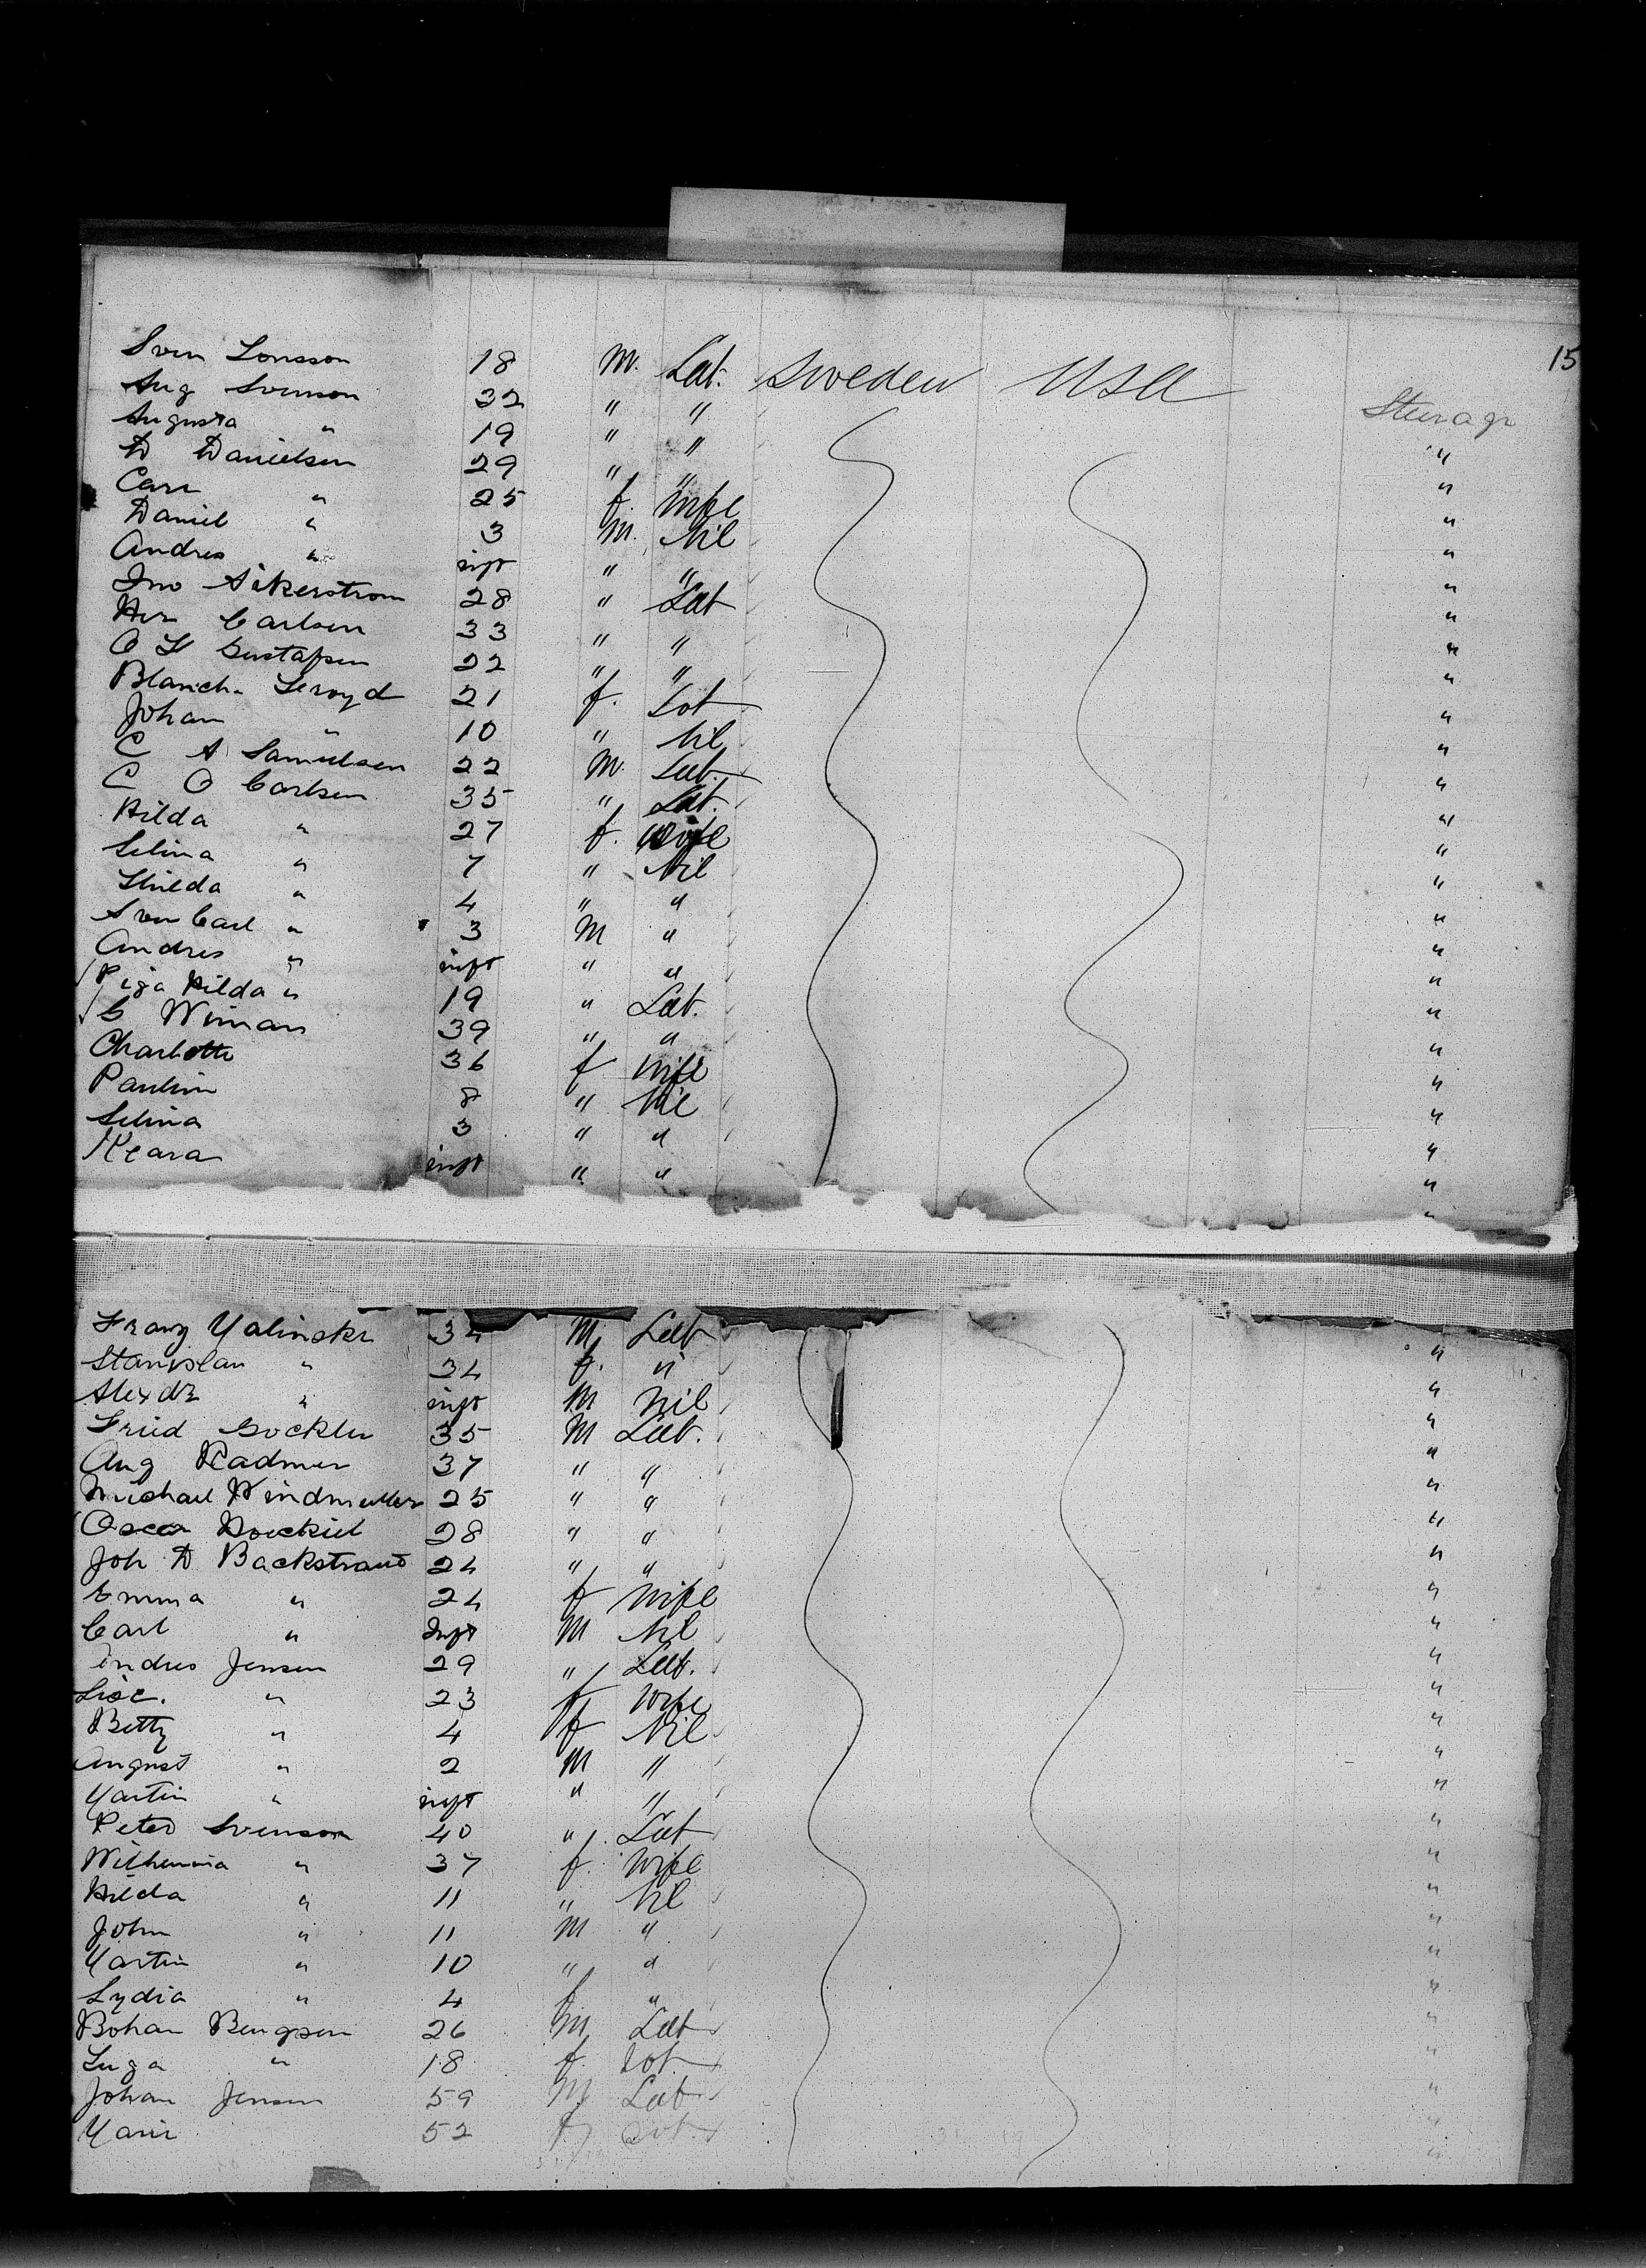 15
Sven Lonsson 18 M. Lab. Sweden USA
Aug Svenson 32 " " Steerage
Augusta " 19 " " "
D Danielsen 29 " " "
" 25 f. wife "
Daniel " 3 M. Nil "
Andres " inft " " "
Jno Akerstrom 28 " Lab "
Carlsen 33 " " "
O Gustafsen 22 " " "
Blanch. Leroyd 21 f. "
Johan " 10 " Nil "
C A Samuelsen 22 M. Lab. "
C O Carlsen 35 " Lab. "
Hilda " 27 f. wife "
Selina " 7 " Nil "
" 4 " " "
Sven Carl " 3 M " "
Andres " inft " " "
Piga Hilda " 19 " Lab. "
Wiman 39 " " "
Charlotte 36 f wife "
Paulin 8 " Nil "
Selina 3 " " "
Klara inft " " "
Franz Yalinski 34 M. Lab "
Stanislau " 34 f. " "
Alexdr " inft M Nil "
Fried Bockler 35 M Lab. "
Aug Radmer 37 " " "
Michael Windmuller 25 " " "
Oscar 28 " " "
Joh D Backstrand 24 " " "
Emma " 24 f wife "
Carl " Inft M Nil "
Andres Jensen 29 " Lab. "
Lise. " 23 f wife "
Betty " 4 f Nil "
August " 2 M " "
Martin " inft " " "
Peter Svenson 40 " Lab "
Wilhemina " 37 f. wife "
Hilda " 11 " Nil "
John " 11 M " "
Martin " 10 " " "
Lydia " 4 f " "
Bohan Bengsen 26 M Lab "
Inga " 18 f. "
Johan Jensen 59 M Lab "
Marie 52 f "